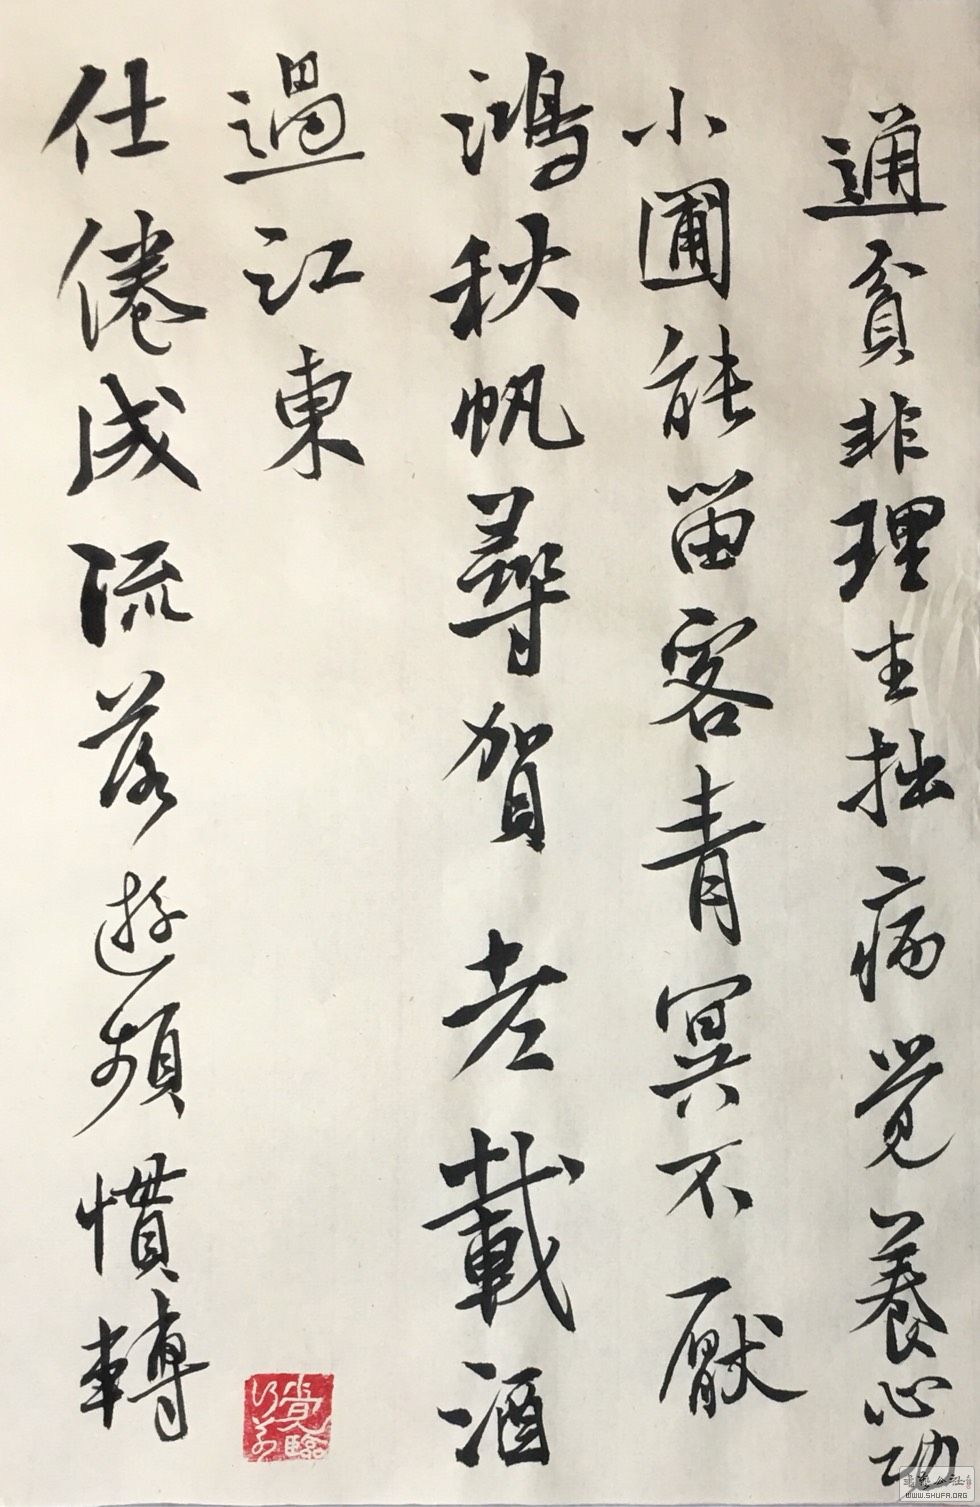 通貧非理生拙病觉養心功
小圃能留客青冥不厭
鴻秋帆尋賀老載酒
過江東
仕倦成流落遊頻慣轉
WWW.SHUFA.ORG